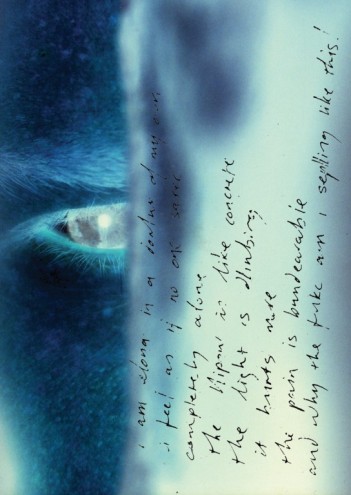 i am along in a
i feel as if no one
completely alone
the lilipai is like concrete
the light is dimbing
it hurts me
the pain is bundearable
and why the fukc am i seplling like this!